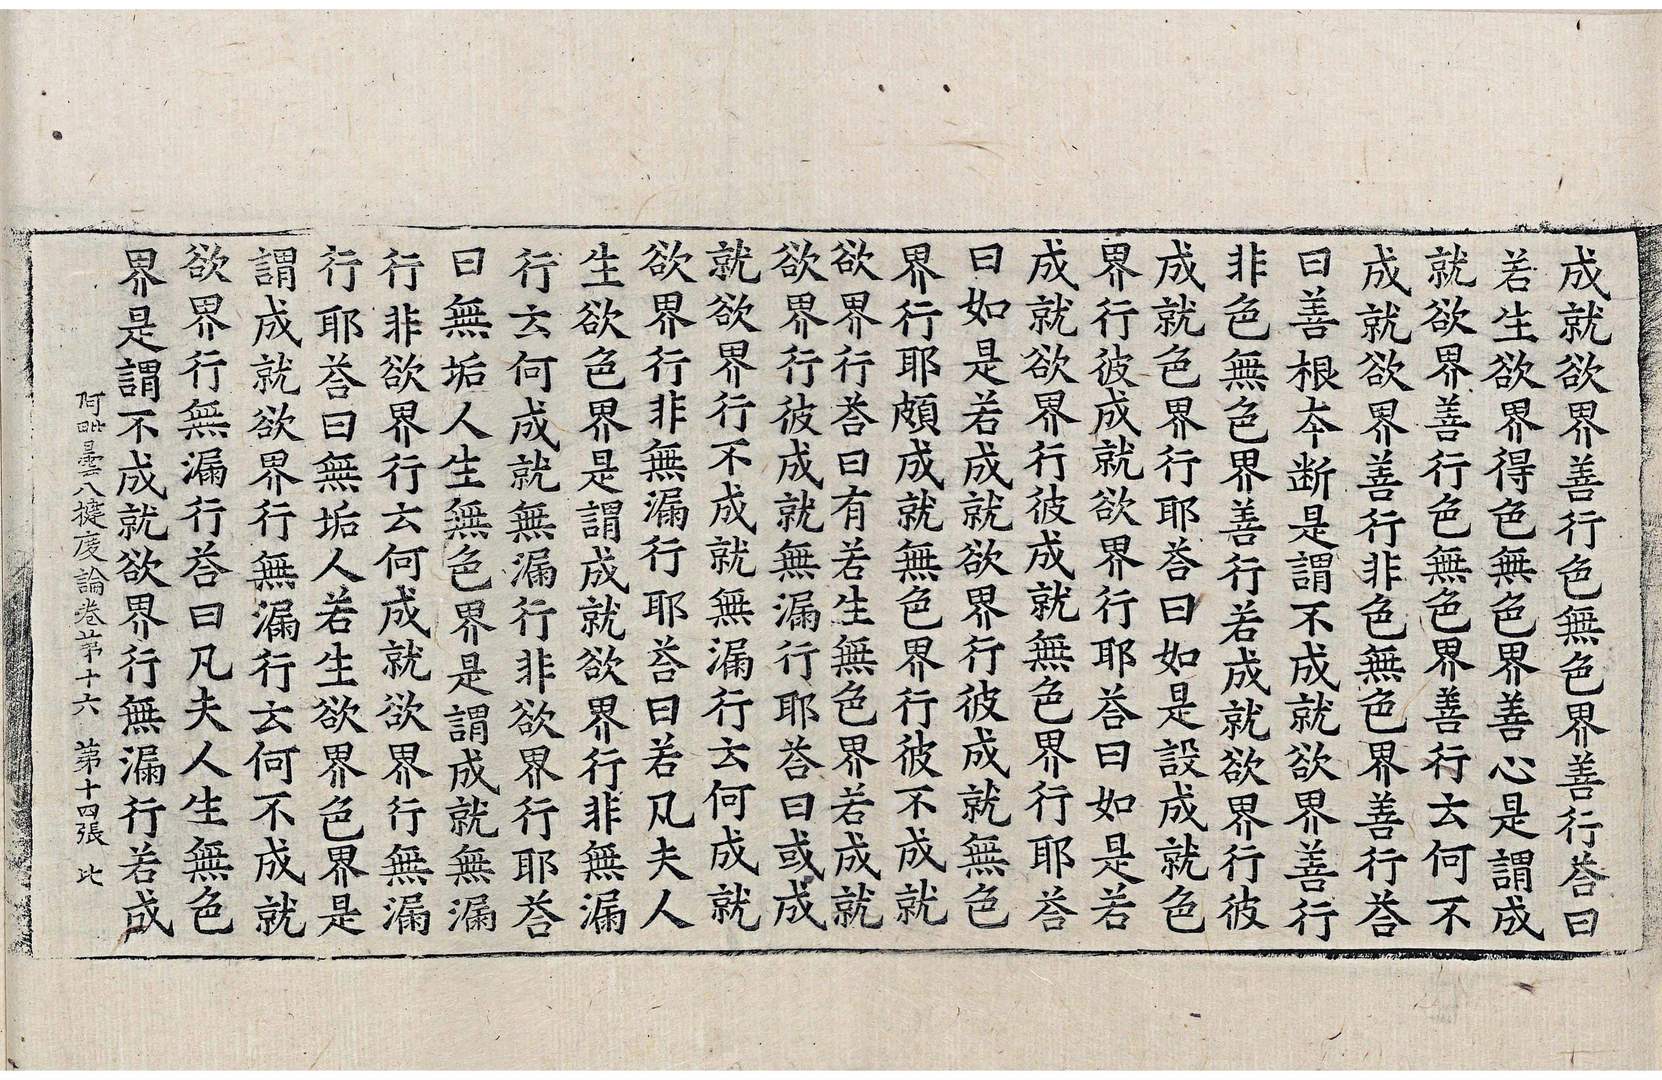 成就欲界善行色無色界善行荅曰
若生欲界得色無色界善心是謂成
就欲界善行色無色界善行云何不
成就欲界善行非色無色界善行荅
曰善根本断是謂不成就欲界善行
非色無色界善行若成就欲界行彼
成就色界行耶荅曰如是設成就色
界行彼成就欲界行耶荅曰如是若
成就欲界行彼成就無色界行耶荅
曰如是若成就欲界行彼成就無色
界行耶頗成就無色界行彼不成就
欲界行荅曰有若生無色界若成就
欲界行彼成就無漏行耶荅曰或成
就欲界行不成就無漏行云何成就
欲界行非無漏行耶荅曰若凡夫人
生欲色界是謂成就欲界行非無漏
行云何成就無漏行非欲界行耶荅
曰無垢人生無色界是謂成就無漏
行非欲界行云何成就欲界行無漏
行耶荅曰無垢人若生欲界色界是
謂成就欲界行無漏行云何不成就
欲界行無漏行荅曰凡夫人生無色
界是謂不成就欲界行無漏行若成
阿毗曇八揵度論卷苐十六 第十四張 比